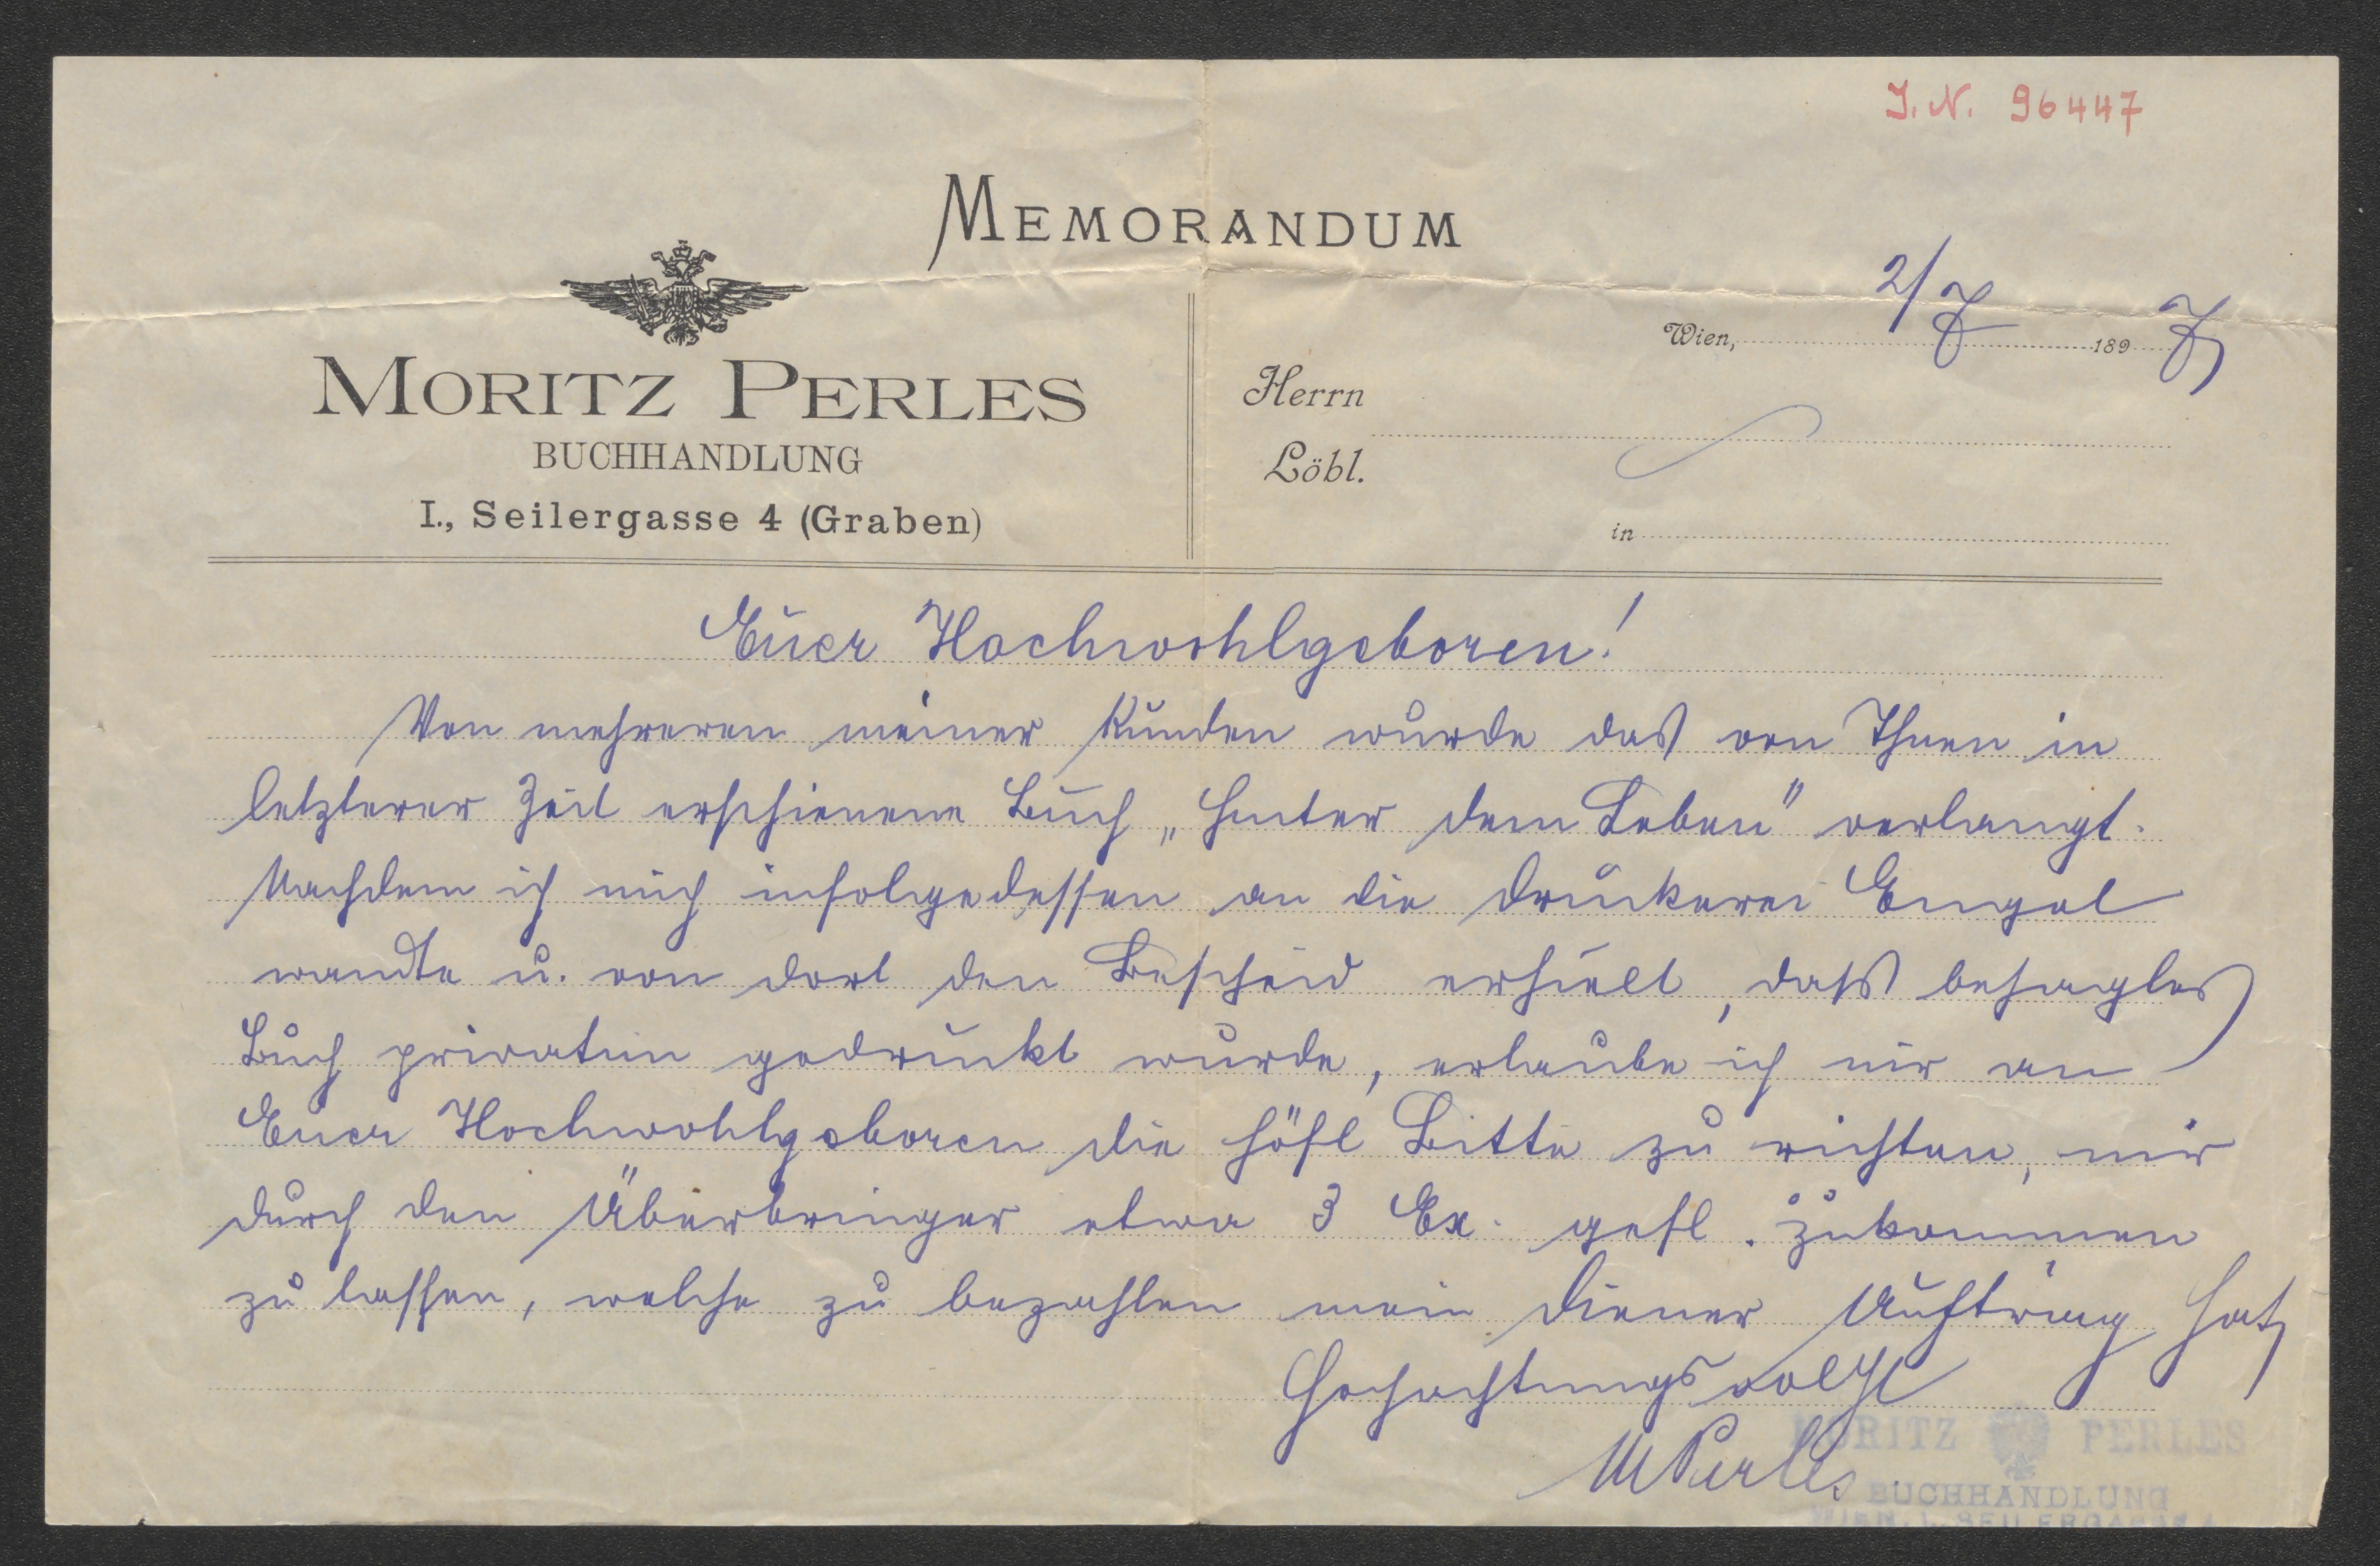 I. N. 96447
MEMORANDUM
MORITZ PERLES
BUCHHANDLUNG
I., Seilergasse 4 (Graben)
Wien, 2/7 1897
Herrn
Löbl.
in
Euer Hochwohlgeboren!
Von mehreren meiner Kunden wurde das von Ihnen in
letzterer Zeit erschienene Buch „Hinter dem Leben" verlangt.
Nachdem ich mich infolgedessen an die Druckerei Engel
wandte u. von dort den Bescheid erhielt, dass besagtes
Buch privatim gedruckt wurde, erlaube ich mir an
Euer Hochwohlgeboren die höfl Bitte zu richten, mir
durch den Überbringer etwa 3 Ex. gefl. zukommen
zu lassen, welche zu bezahlen mein Diener Auftrag hat
Hochachtungsvollst
MPerles
MORITZ PERLES
BUCHHANDLUNG
WIEN, I. SEILERGASSE 4